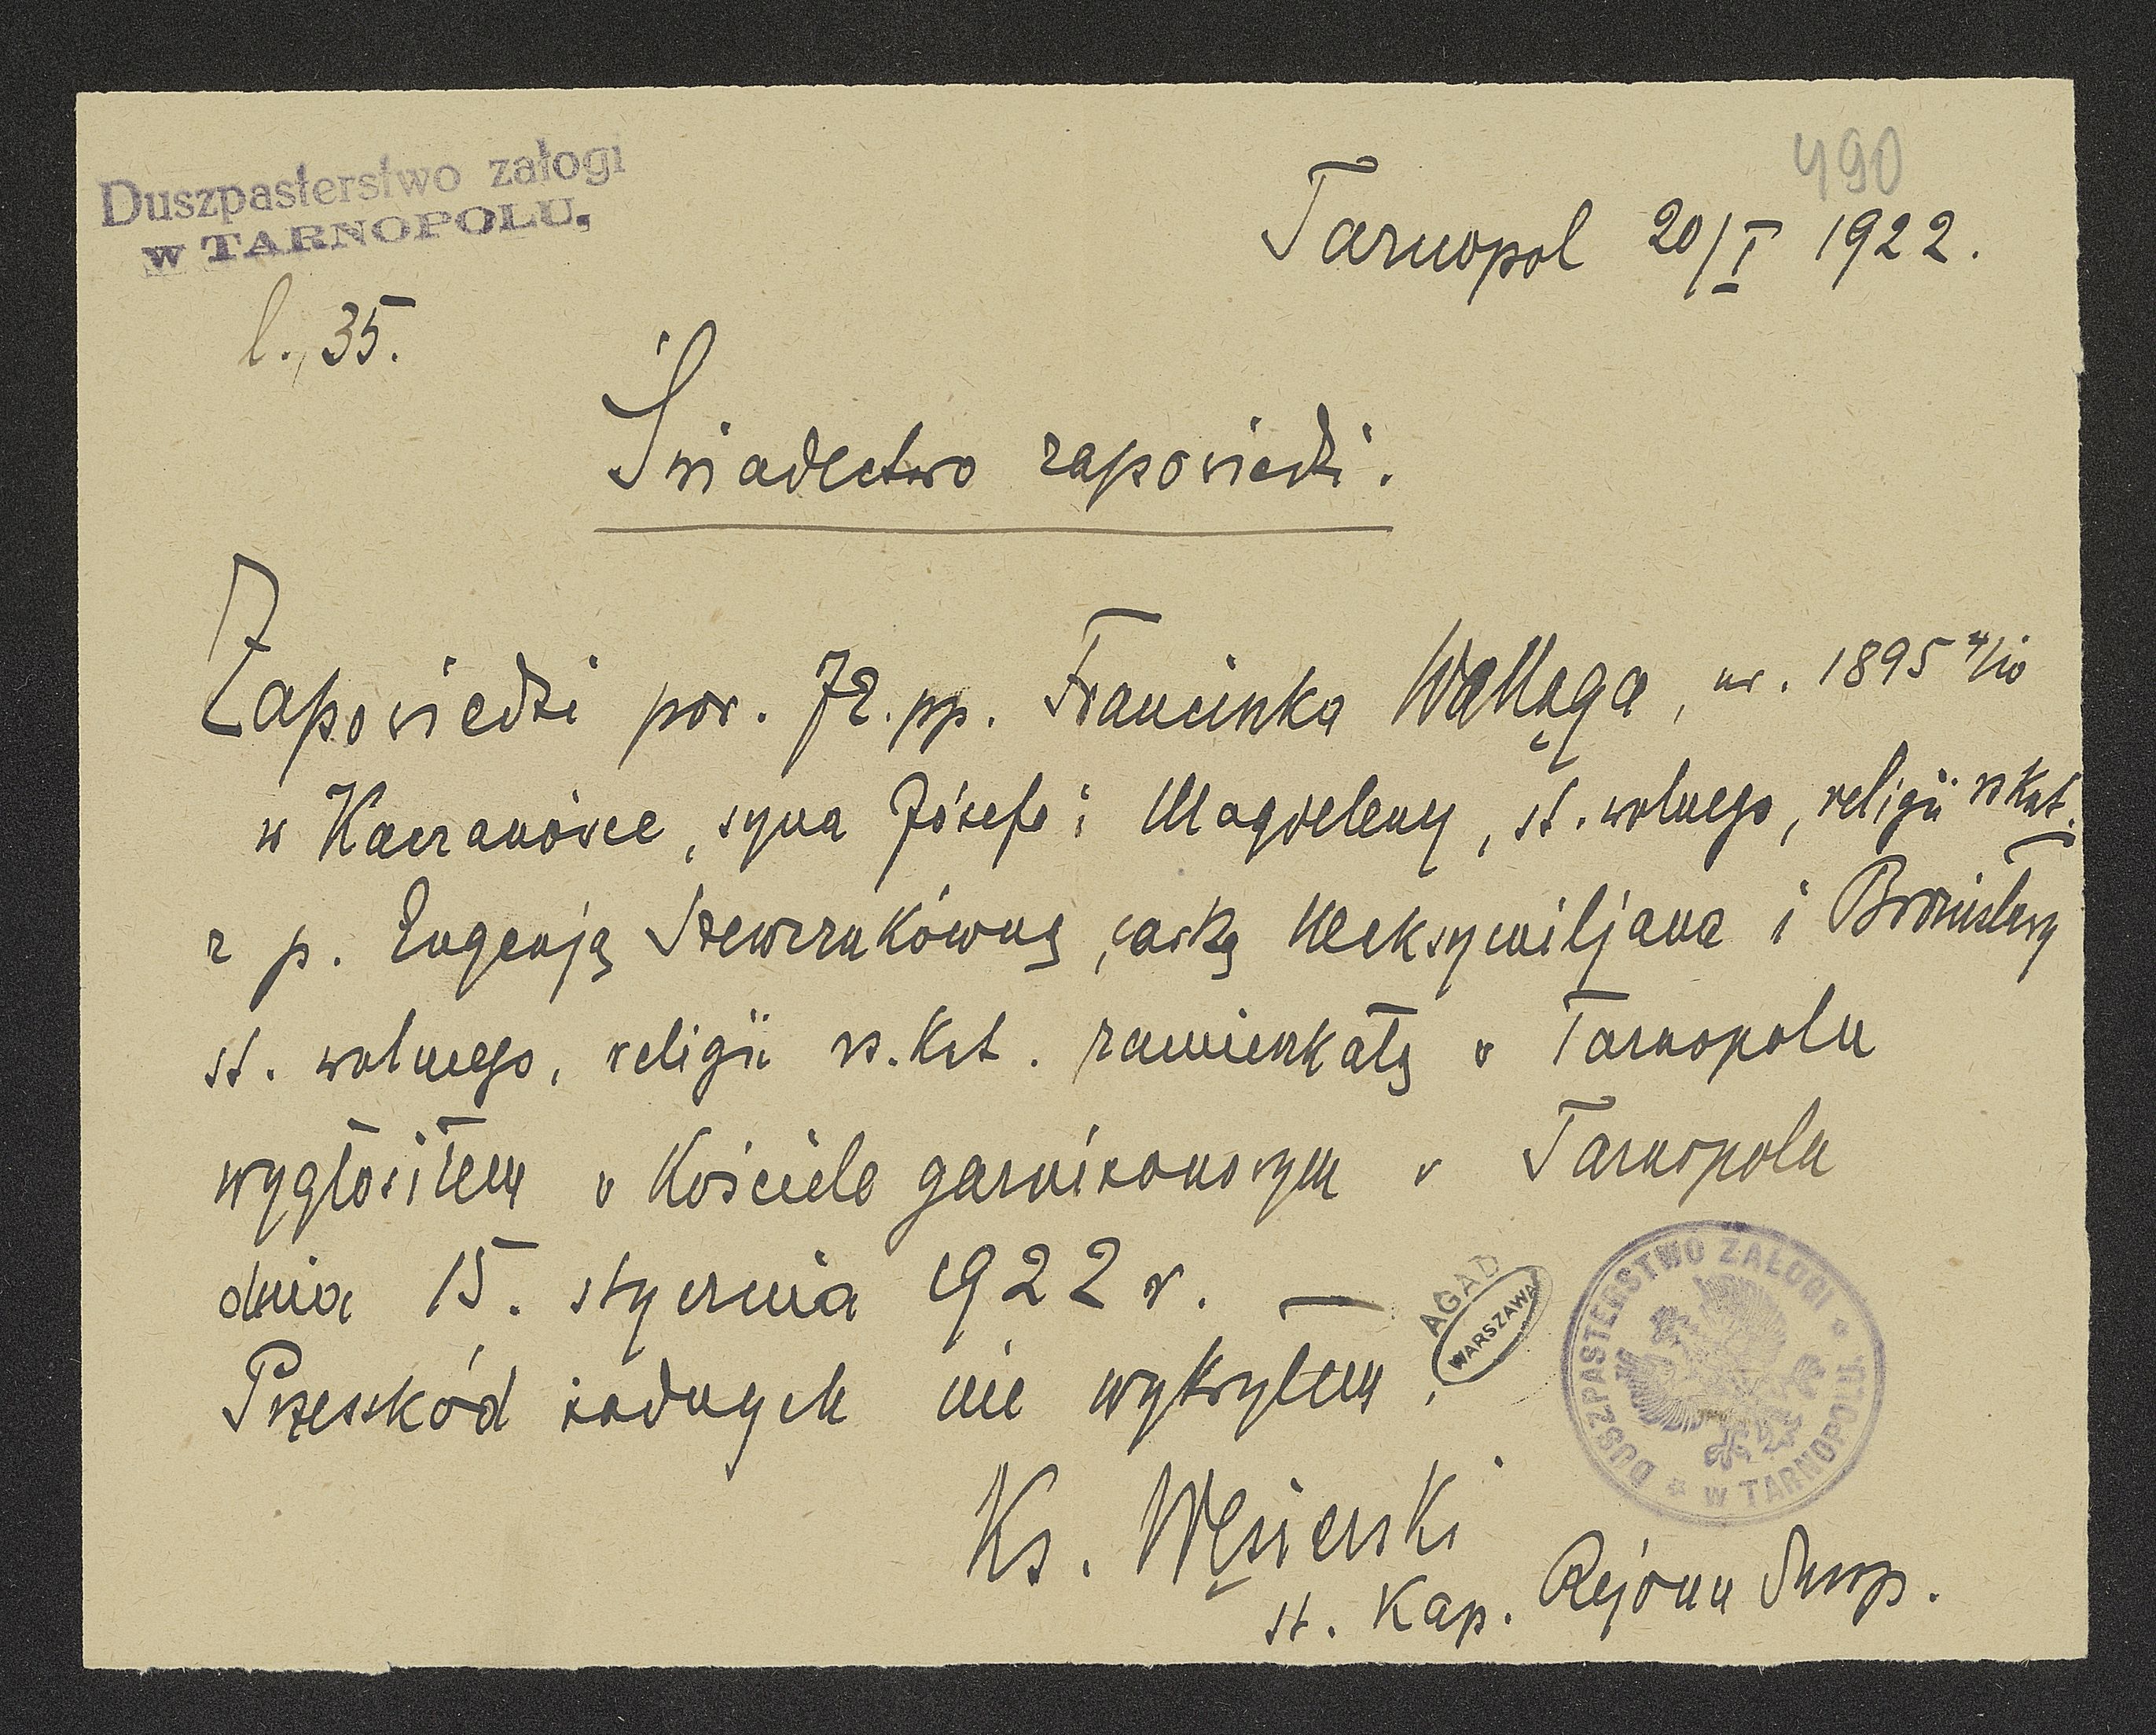 490
Duszpasterstwo załogi
w TARNOPOLU,
Tarnopol 20/I 1922.
l., 35.
Świadectwo zapowiedzi.
Zapowiedzi por. 72. pp. Franciszka Wałęga, ur. 1895 4/10
w Kaczanówce, syna Józefa i Magdeleny, st. wolnego, religii rz kat.
z p. Eugenją Szewczukówną, córką Maksymiljana i Bronisławy
st. wolnego, religii rz. kat. zamieszkałą w Tarnopolu
wygłosiłem w Kościele garnizonowym w Tarnopolu
dnia 15. stycznia 1922 r. —
Przeszkód żadnych nie wykryłem.
AGAD
WARSZAWA
DUSZPASTERSTWO ZAŁOGI * w TARNOPOLU. *
Ks. Węsierski
st. Kap. Rejonu Duszp.